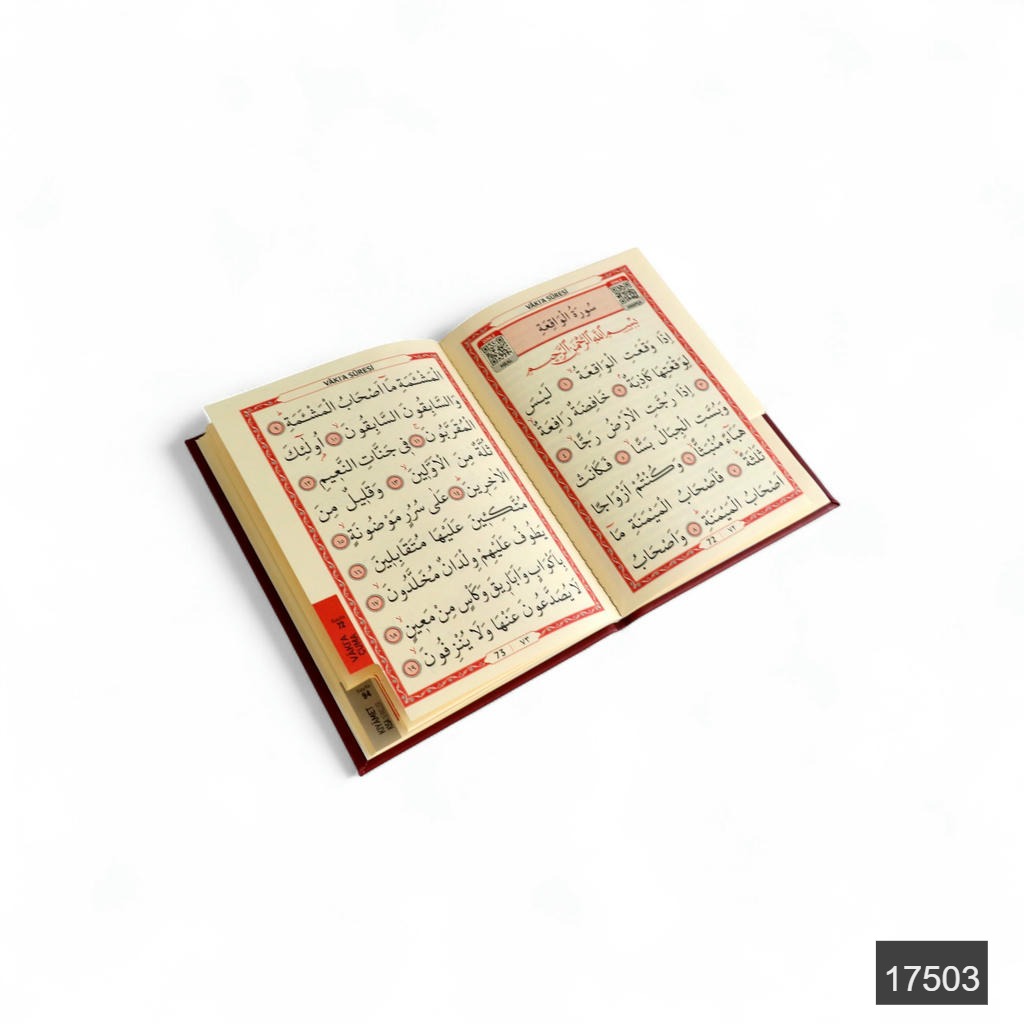 VÂKI'A SÛRESİ
سُورَةُ الْوَاقِعَةِ
بِسْمِ اللّٰهِ الرَّحْمٰنِ الرَّحِيمِ
اِذَا وَقَعَتِ الْوَاقِعَةُ ۙ ﴿١﴾ لَيْسَ
لِوَقْعَتِهَا كَاذِبَةٌ ۢ ﴿٢﴾ خَافِضَةٌ رَافِعَةٌ
﴿٣﴾ اِذَا رُجَّتِ الْاَرْضُ رَجًّا ﴿٤﴾
وَبُسَّتِ الْجِبَالُ بَسًّا ﴿٥﴾ فَكَانَتْ
هَبَاءً مُنْبَثًّا ﴿٦﴾ وَكُنْتُمْ اَزْوَاجًا
ثَلٰثَةً ﴿٧﴾ فَاَصْحَابُ الْمَيْمَنَةِ مَا
اَصْحَابُ الْمَيْمَنَةِ ﴿٨﴾ وَاَصْحَابُ
72 ٧٢
VÂKI'A SÛRESİ
الْمَشْـَٔمَةِ مَا اَصْحَابُ الْمَشْـَٔمَةِ ﴿٩﴾
وَالسَّابِقُونَ السَّابِقُونَ ﴿١٠﴾ اُولٰئِكَ
الْمُقَرَّبُونَ ﴿١١﴾ فِي جَنَّاتِ النَّعِيمِ ﴿١٢﴾
ثُلَّةٌ مِنَ الْاَوَّلِينَ ﴿١٣﴾ وَقَلِيلٌ مِنَ
الْاٰخِرِينَ ﴿١٤﴾ عَلٰى سُرُرٍ مَوْضُونَةٍ ﴿١٥﴾
مُتَّكِـِٔينَ عَلَيْهَا مُتَقَابِلِينَ ﴿١٦﴾
يَطُوفُ عَلَيْهِمْ وِلْدَانٌ مُخَلَّدُونَ ﴿١٧﴾
بِاَكْوَابٍ وَاَبَارِيقَ وَكَأْسٍ مِنْ مَعِينٍ ﴿١٨﴾
لَا يُصَدَّعُونَ عَنْهَا وَلَا يُنْزِفُونَ ﴿١٩﴾
73 ٧٣
VÂKI'A
CUMA
KIYÂMET
17503